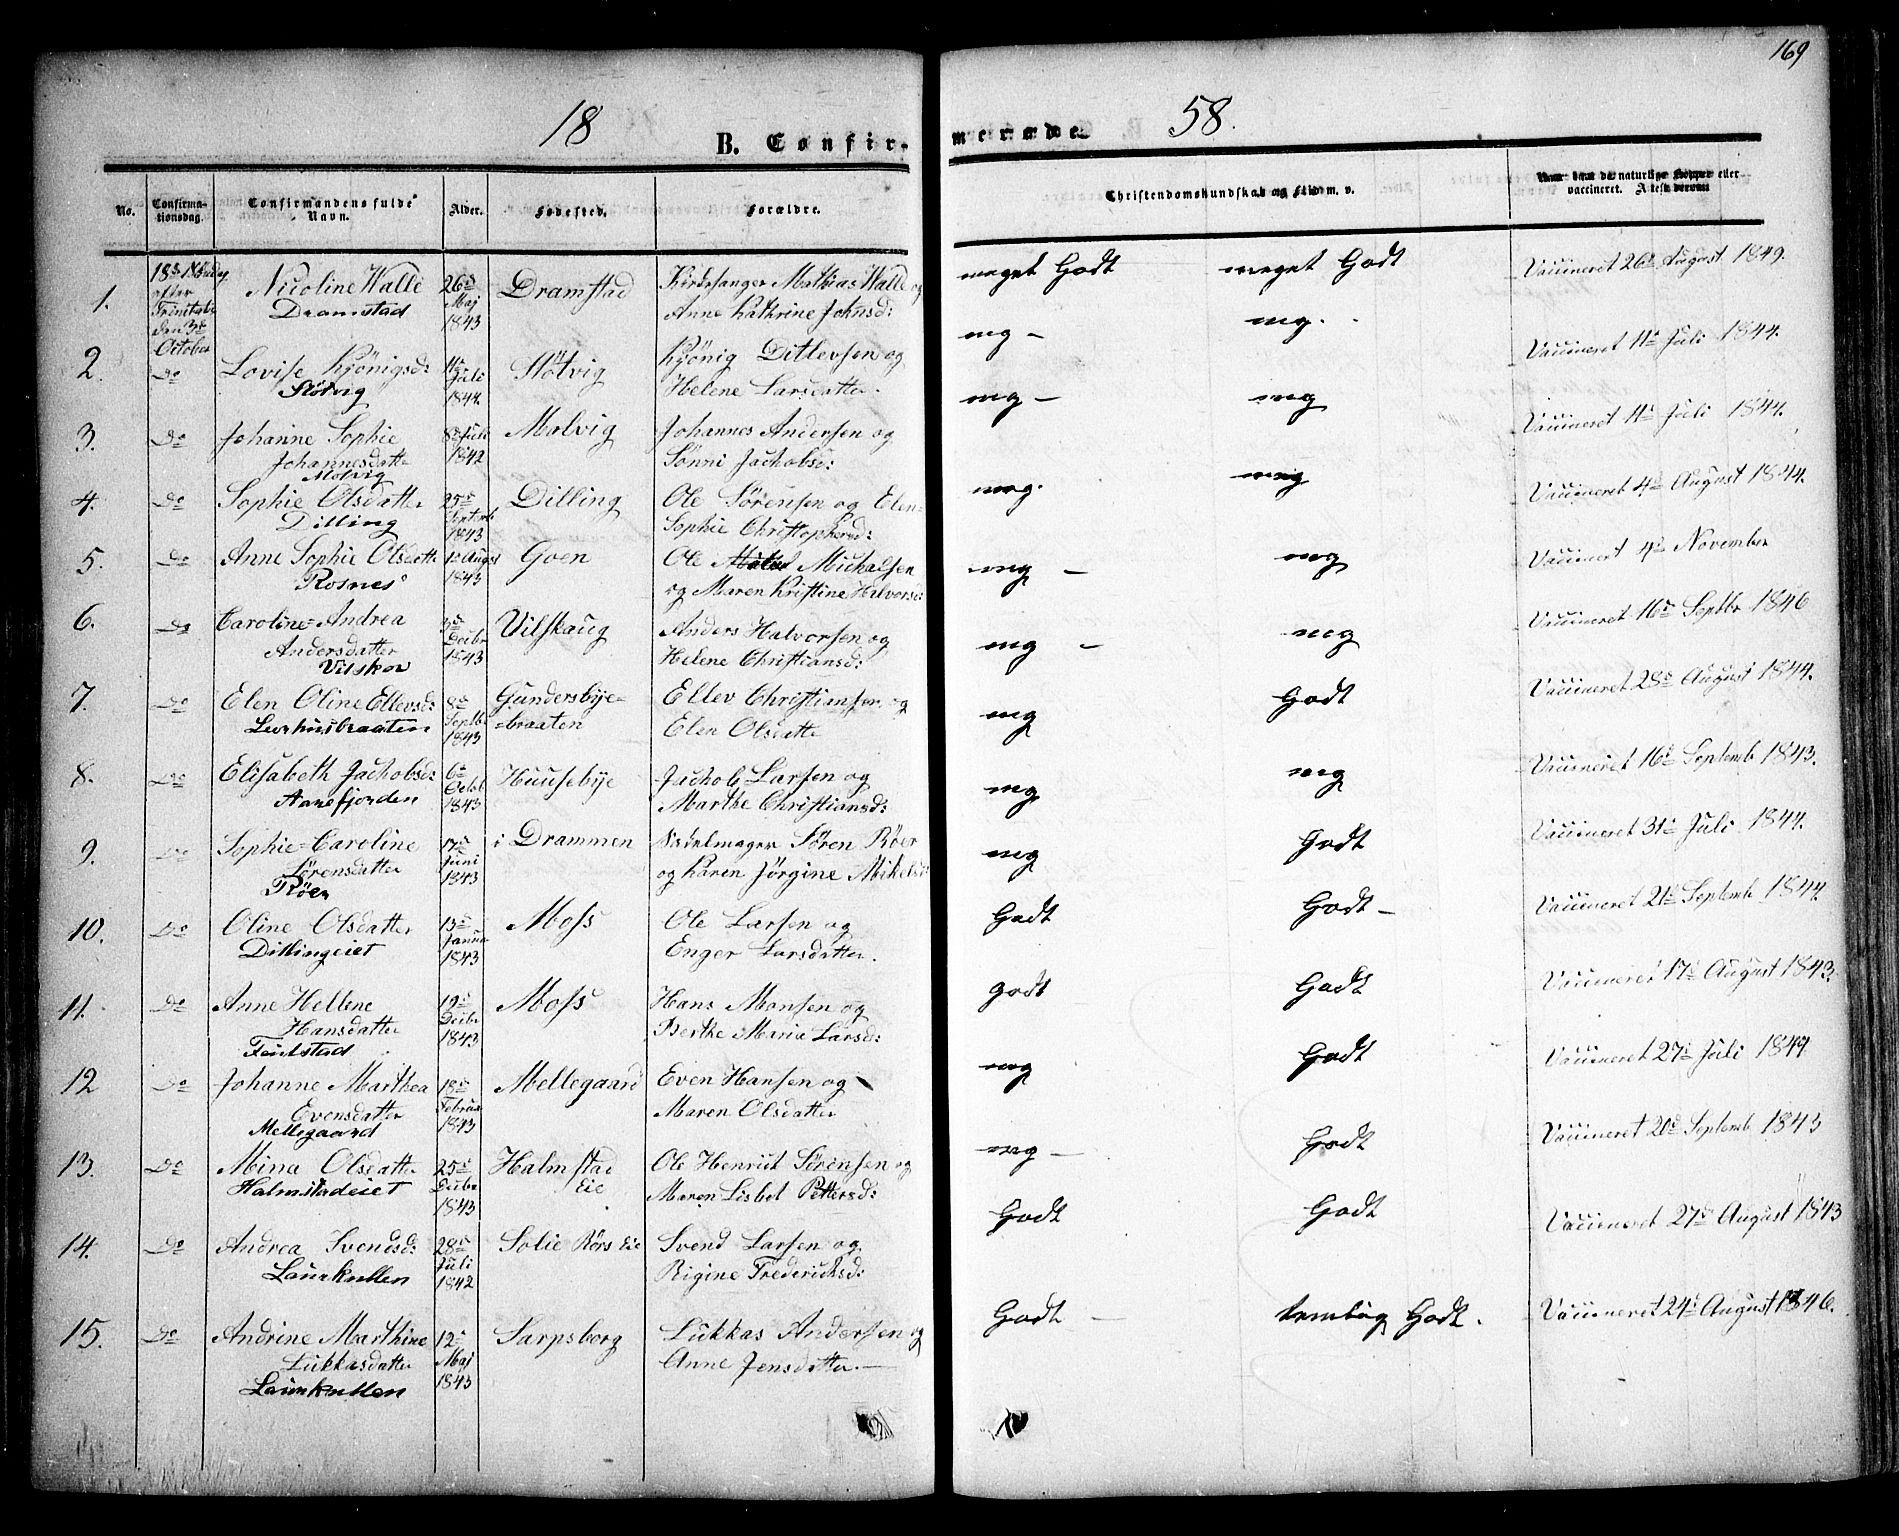 169
18 58.
B. Confirmerede.
No. Confirmationsdag. Confirmandens fulde Navn. Alder. Fødested. Forældre. Christendomskundskab og Flid m. v. naturlige Kopper eller vaccineret. Attest derom
1. 18de Søndag efter Trinitatis den 3die October Nicoline Walle Dramstad 26de Maj 1843 Dramstad Kirkesanger Mathias Walle og Anne Kathrine Johnsd: meget Godt meget Godt Vaccineret 26de August 1849.
2. Do Lovise Kjønigsd: Støtvig 11te Juli 1844 Støtvig Kjønig Ditlevsen og Helene Larsdatter. mg – mg. Vaccineret 11te Juli 1844.
3. Do Johanne Sophie Johannesdatter Molvig 8de Juli 1842 Molvig Johannes Andersen og Sønni Jachobsd: mg – mg Vaccineret 11te Juli 1844.
4. Do Sophie Olsdatter Dilling 25de Septemb 1843 Dilling Ole Sørensen og Elen Sophie Christophersd: mg. mg Vaccineret 4de August 1844.
5. Do Anne Sophie Olsdatter Rosnes 1ste August 1843 Goen Ole Michalsen og Maren Kristine Halvorsd: mg – mg Vaccineret 4de November
6. Do Caroline Andrea Andersdatter Vilskov 3de Decbr 1843 Vilskaug Anders Halvorsen og Helene Christiansd: mg – mg Vaccineret 16de Septbr 1846
7. Do Elen Oline Ellevsd: Leerhusbraaten 8de Septbr 1843 Gundersbye=braaten Ellev Christiansen og Elen Olsdatter mg Godt Vaccineret 28de August 1844.
8. Do Elisabeth Jachobsd: Aarefjorden 6te Octob 1843 Huusebye Jachob Larsen og Marthe Christiansd: mg mg Vaccineret 16de Septemb 1843.
9. Do Sophie=Caroline Sørensdatter Røer 17de Juni 1843 i Drammen Sadelmager Søren Røer og Karen Jørgine Mikelsd: mg Godt Vaccineret 31te Juli 1844.
10. Do Oline Olsdatter Dillingeiet 13de Januar 1843 Moss Ole Larsen og Enger Larsdatter. Godt Godt – Vaccineret 21de Septemb 1844.
11. Do Anne Hellene Hansdatter 19de Decbr 1843 Moss Hans Monsen og Berthe Maria Larsd: godt Godt Vaccineret 17de August 1843.
12 Do Johanne Marthea Evensdatter Mellegaard 18de Februar 1843 Mellegaard Even Hansen og Maren Olsdatter mg Godt Vaccineret 27de Juli 1844.
13. Do Mina Olsdatter Halmstadeiet 25de Decbr 1843 Halmstad Eie Ole Henrik Sørensen og Maren Lisbet Pettersd: mg – Godt Vaccineret 20de Septemb 1843
14. Do Andrea Svendsd: Laurkullen 28de Juli 1842 Solie Rørs Eie Svend Larsen og Rigine Frederichsd: Godt Godt Vaccineret 27de August 1843
15. Do Andrine Marthine Lukkasdatter Laurkullen 12te Maj 1843 Sarpsborg Lukkas Andersen og Anne Jensdatter. – Godt – temlig Godt. Vaccineret 24de August 1846.